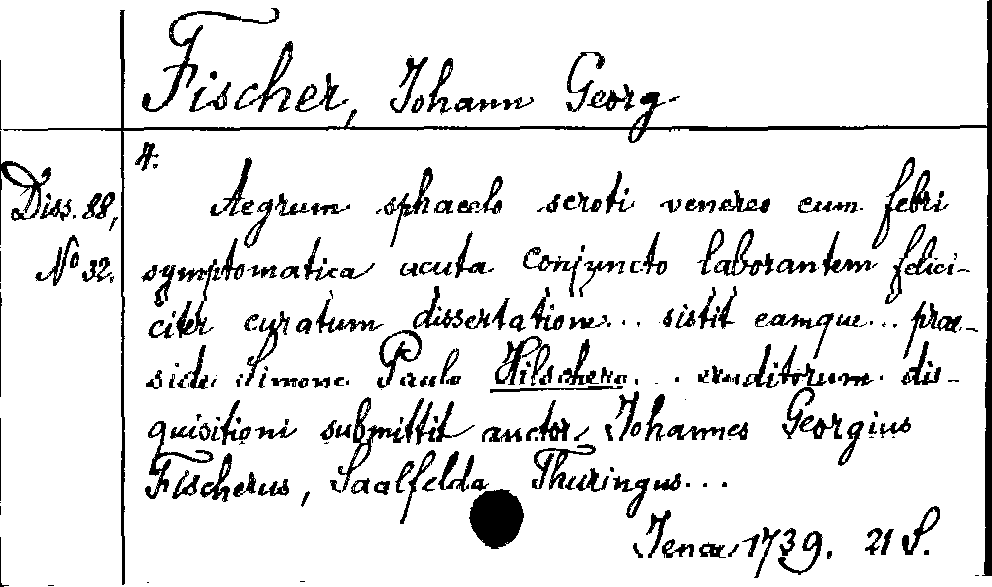 Fischer, Johann Georg
4.
Diss. 88,
No 32.
Aegrum sphacelo scroti venereo cum febri
symptomatica acuta conjuncto laborantem felici-
citer curatum dissertatione... sistit eamque... prae-
side Simone Paulo Hilschero... eruditorum dis-
quisitioni submittit auctor Johannes Georgius
Fischerus, Saalfelda Thuringus...
Jenae 1739. 21 S.